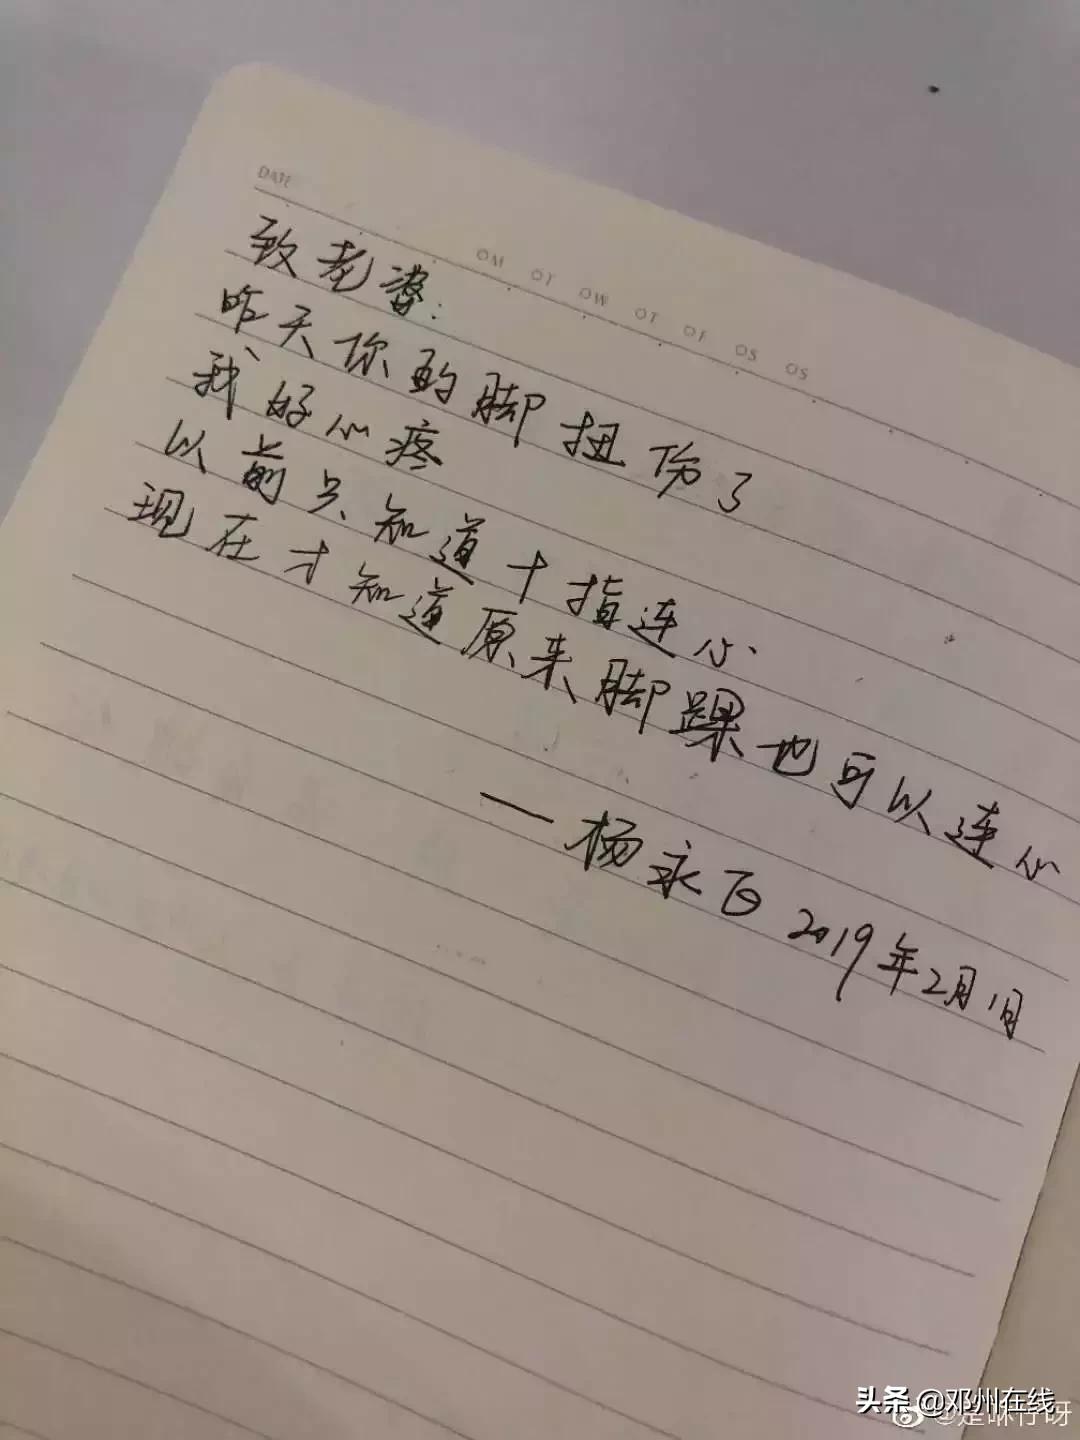 DATE
OM OT OW OT OF OS OS
致老婆:
昨天你的脚扭伤了
我好心疼
以前只知道十指连心
现在才知道原来脚踝也可以连心
—杨永 2019年2月1日
头条 @邓州在线